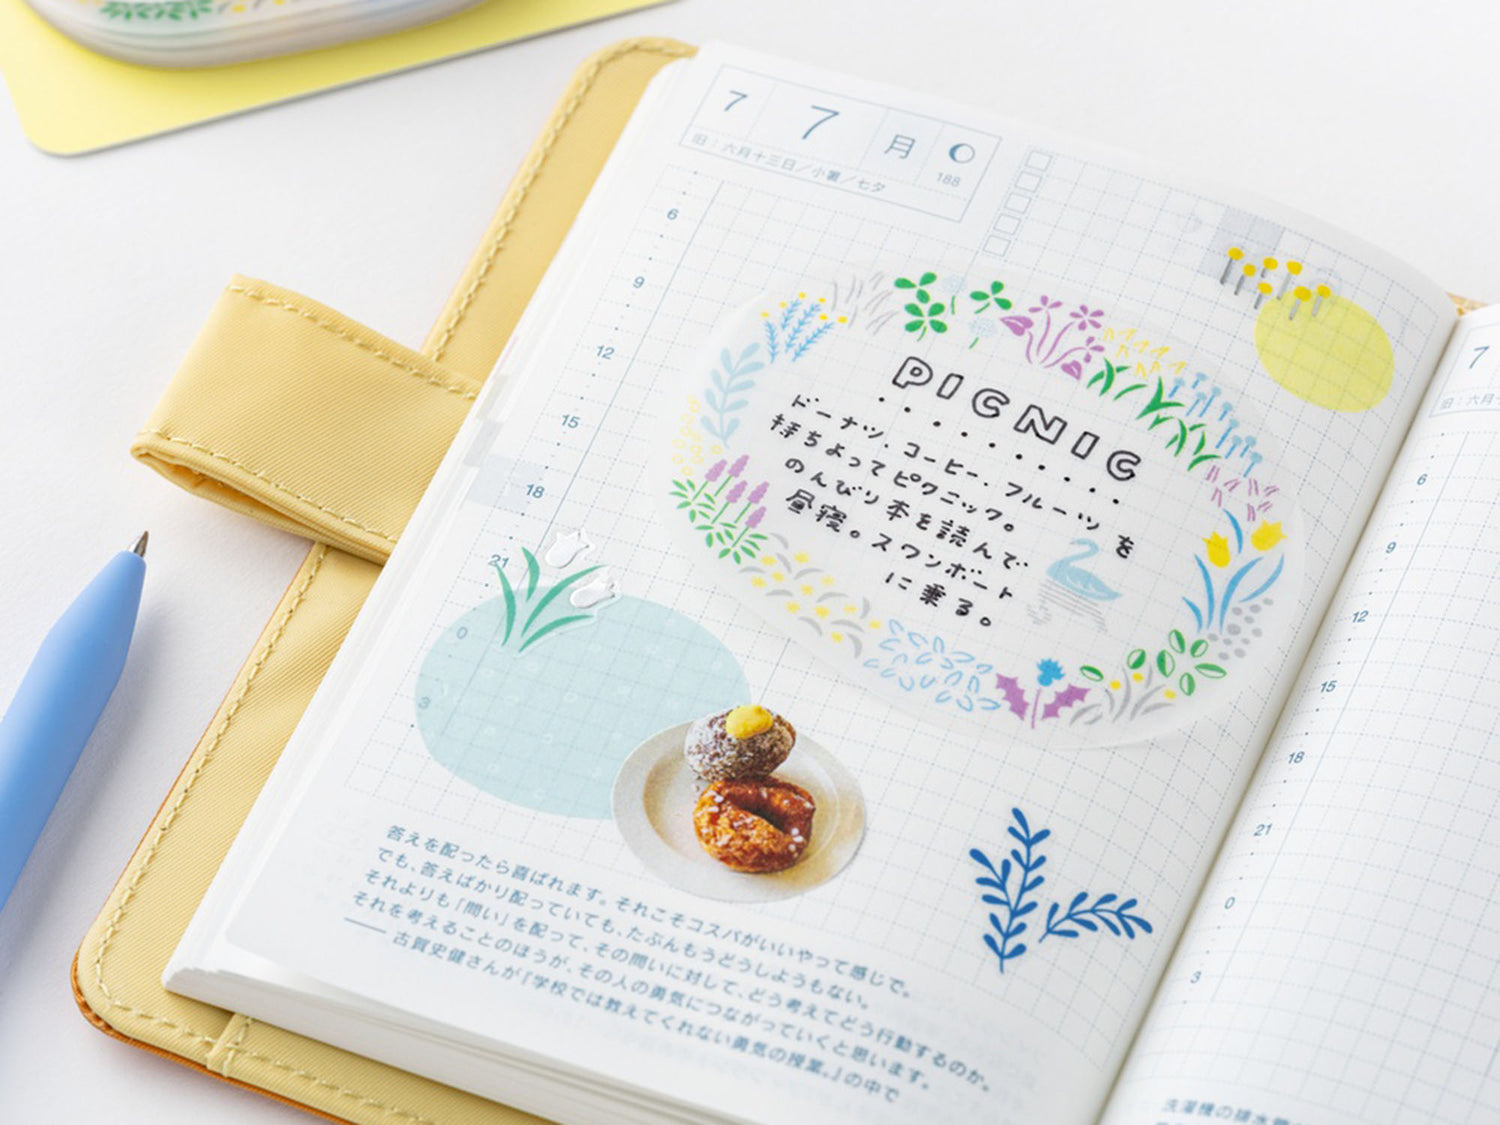 7 7 月
188
旧：六月十三日／小暑／七夕
6
9
12
15
18
21
0
3
PICNIC
ドーナツ、コーヒー、フルーツ を
持ちよってピクニック。
のんびり本を読んで
昼寝。スワンボート
に乗る。
答えを配ったら喜ばれます。それこそコスパがいいやって感じで。
でも、答えばかり配っていても、たぶんもうどうしようもない。
それよりも「問い」を配って、その問いに対して、どう考えてどう行動するのか。
それを考えることのほうが、その人の勇気につながっていくと思います。
── 古賀史健さんが『学校では教えてくれない勇気の授業。』の中で
7
旧：六月
6
9
12
15
18
21
0
3
洗濯機の排水